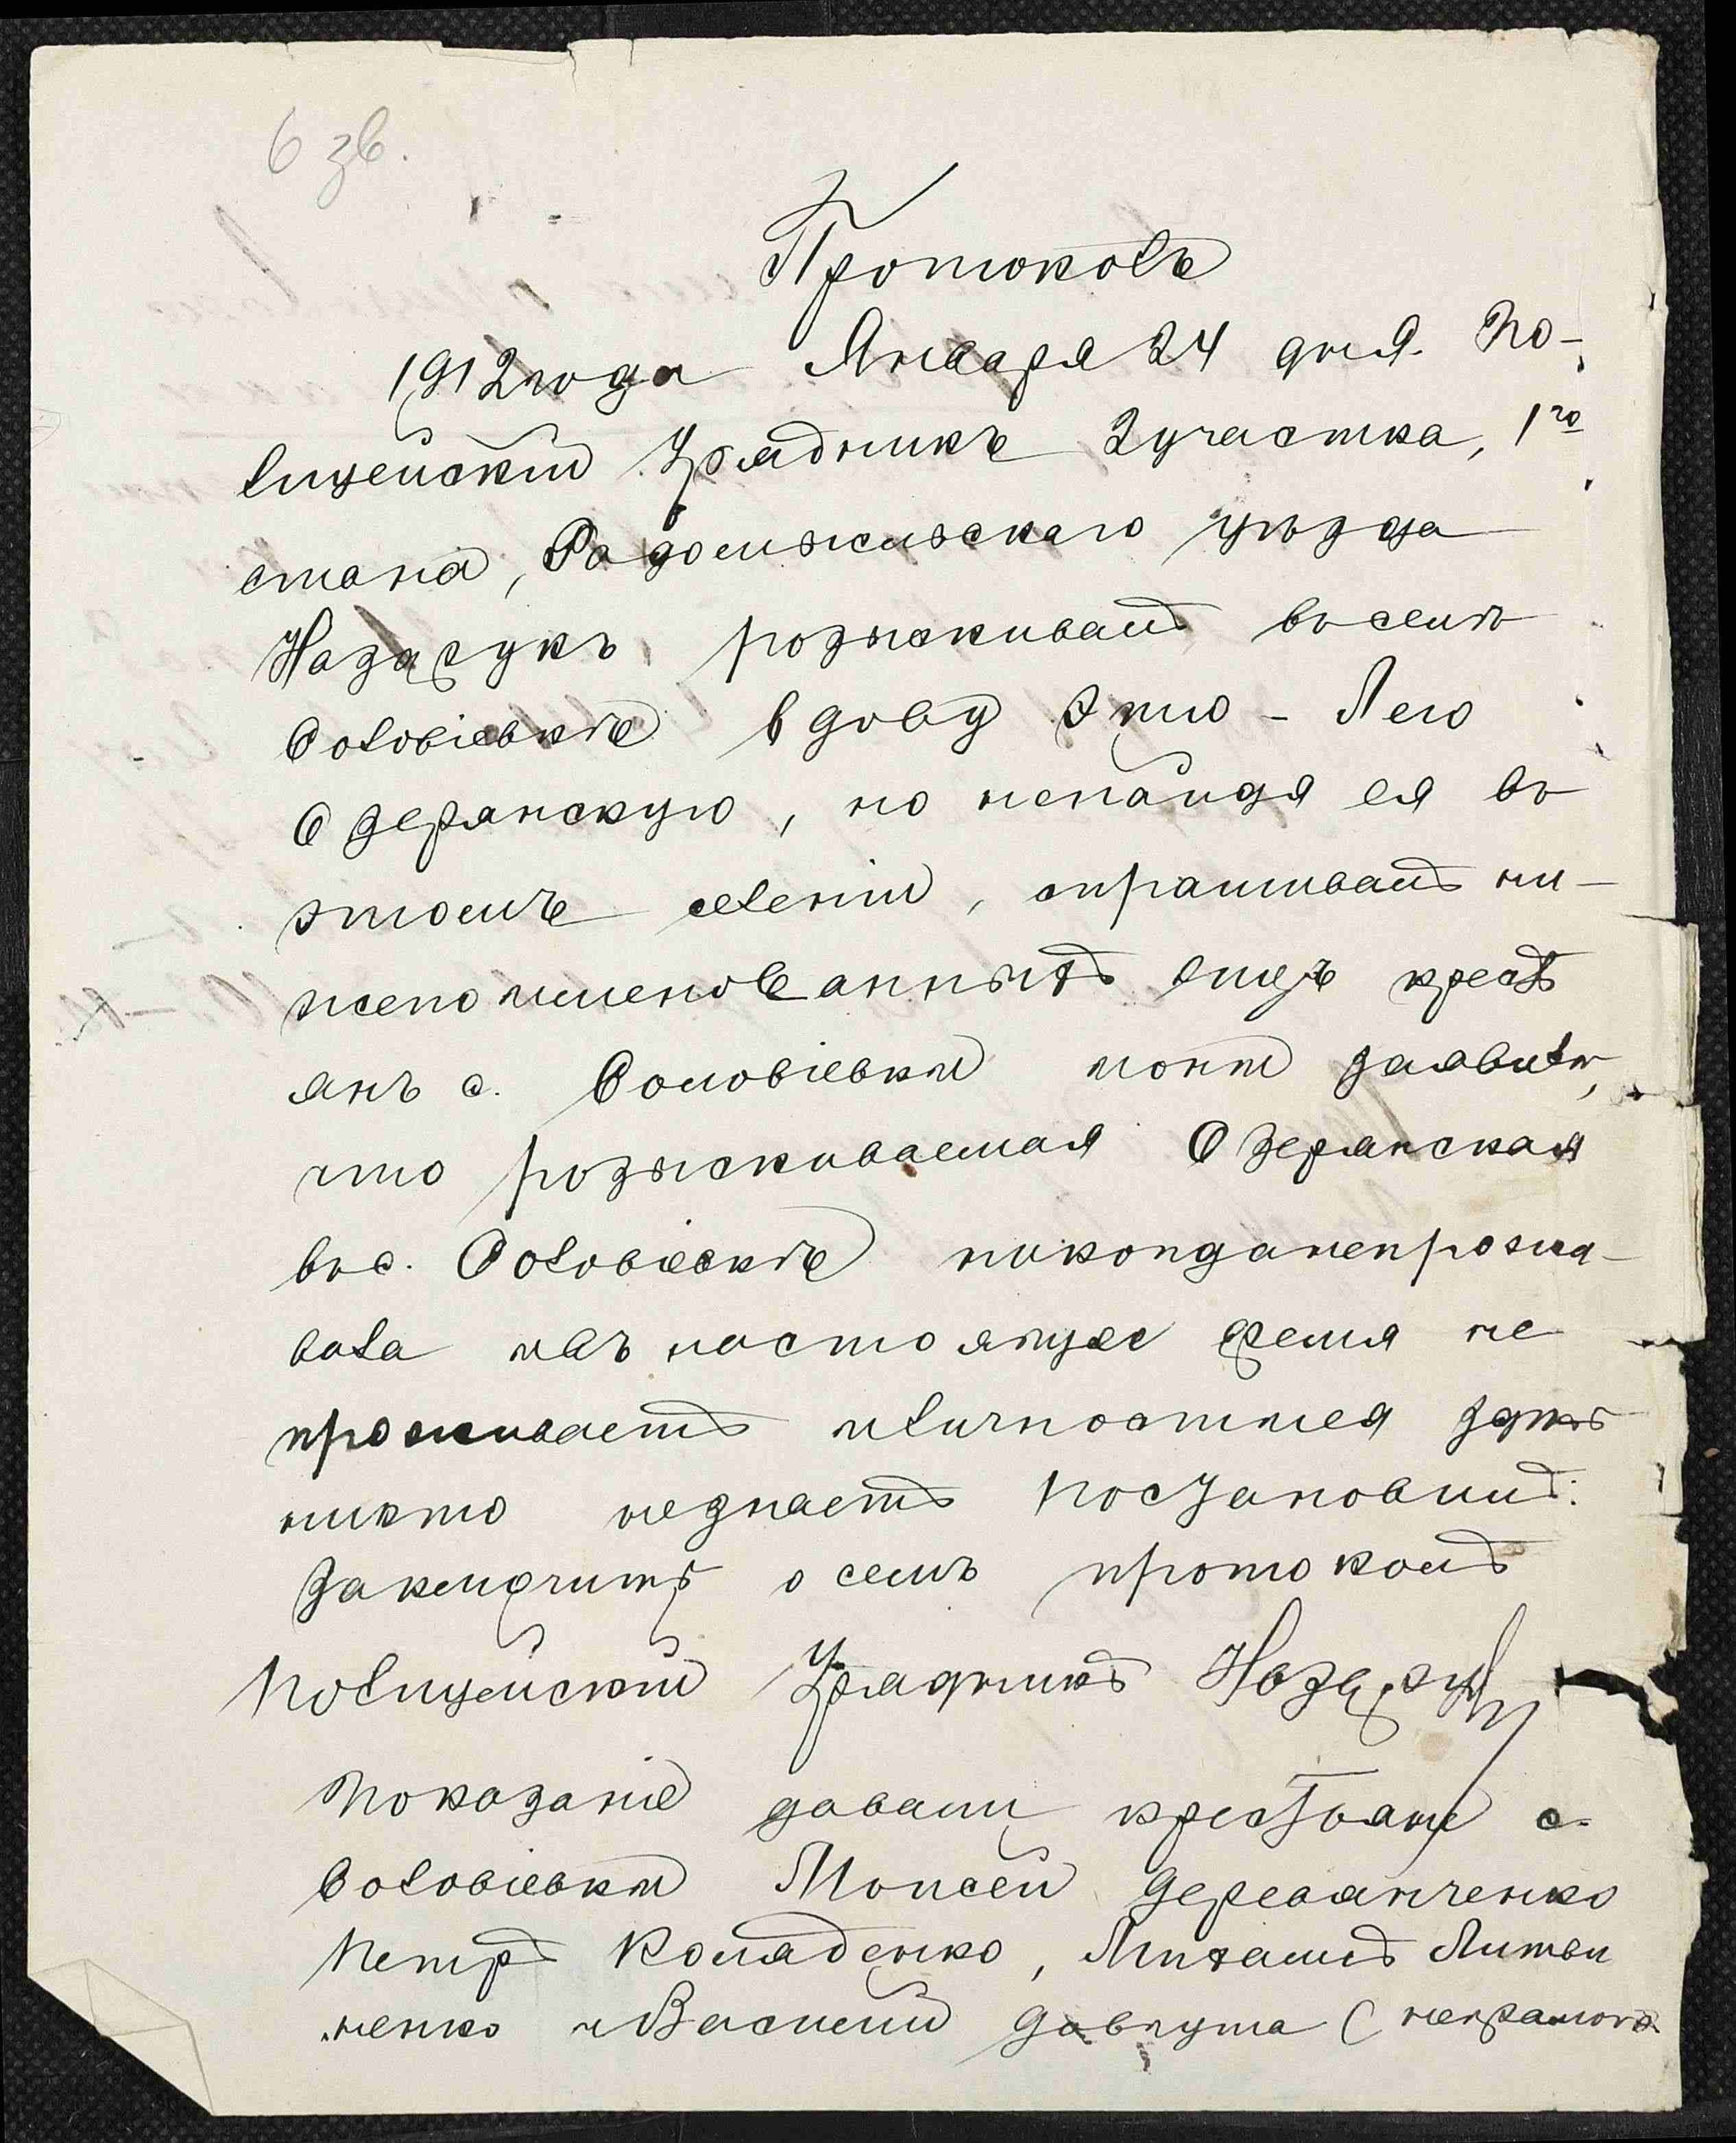 6 зв.
Протоколъ
1912 года Января 24 дня. По-
лицейскій Урядникъ 2 участка, 1го
стана, Радомысльскаго уѣзда
Назарукъ, розыскивалъ въ селѣ
Соловіевкѣ вдову Этю-Лею
Озерянскую, но ненайдя ея въ
этомъ селеніи, спрашивалъ ни-
жепоименованныхъ лицъ крестъ
янъ с. Соловіевки кои заявили,
что розыскиваемая Озерянская
въ с. Соловіевкѣ никогда непрожи-
вала и въ настоящее время не
проживаетъ и личности ея здѣсь
никто незнаетъ Постановилъ:
Заключить о семъ протоколъ
Полицейскій Урядникъ Назарукъ
Показаніе давали крестьяне с.
Соловіевки Моисей Деревянченко
Петръ Коляденко, Михаилъ Литви
ненко и Василій Довгута (неграмотн.